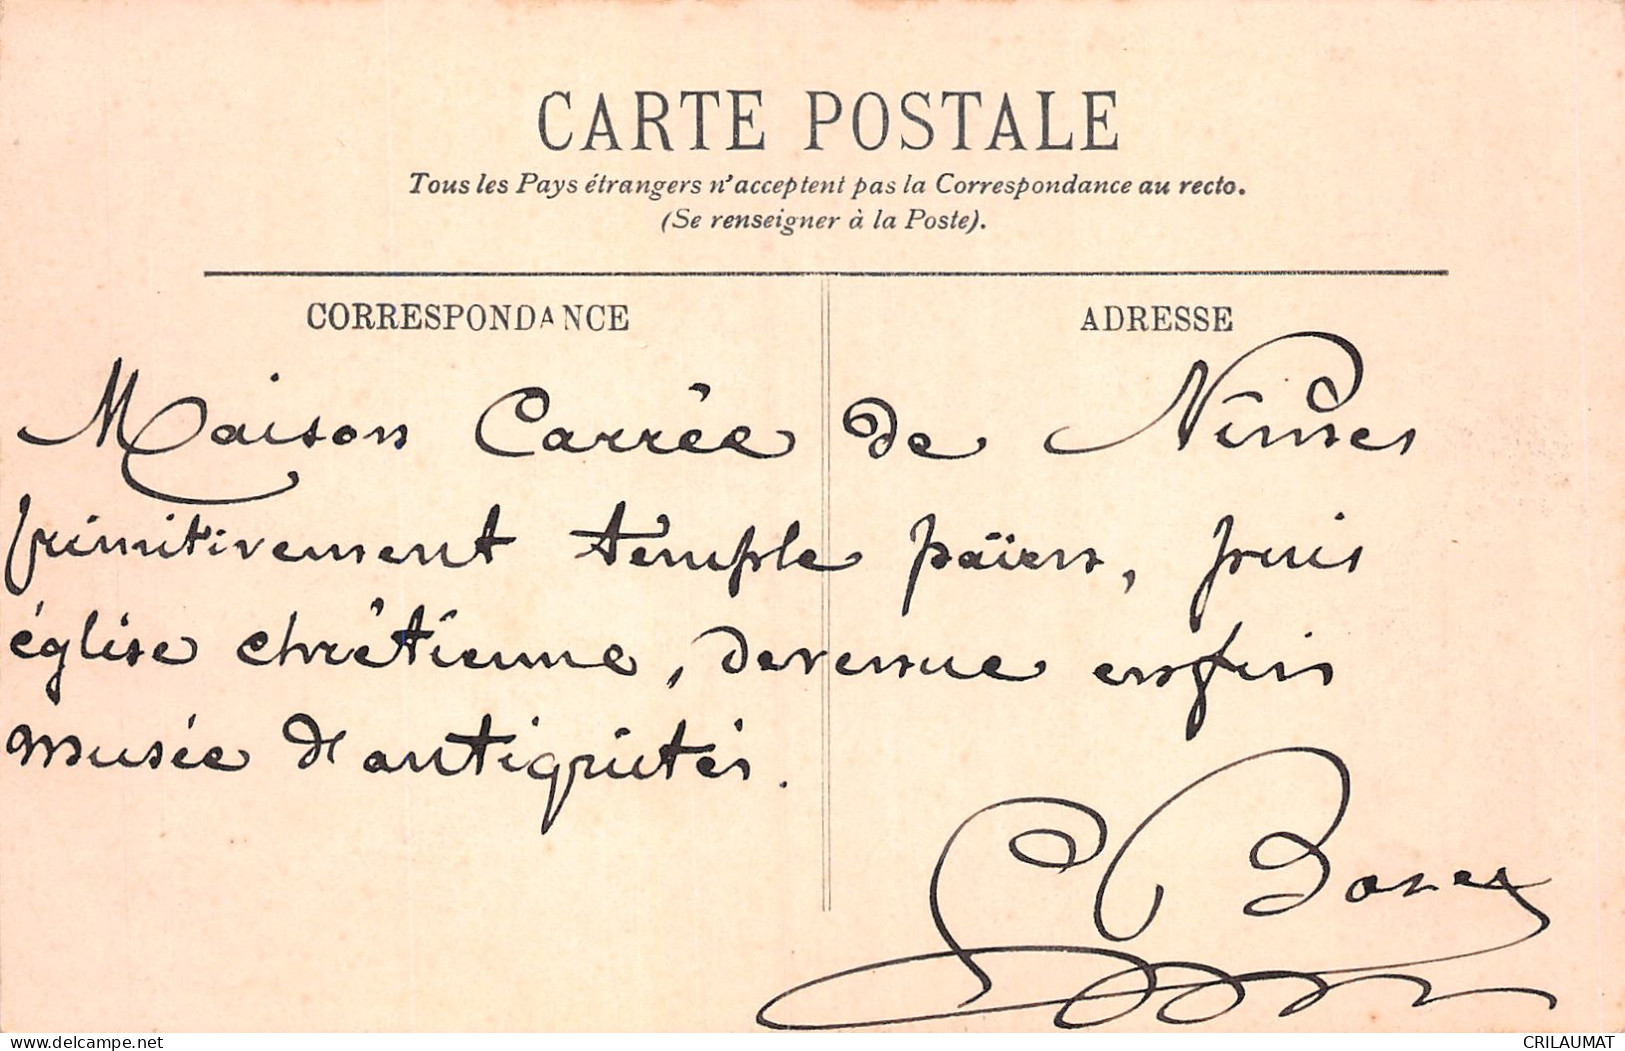 CARTE POSTALE
Tous les Pays étrangers n'acceptent pas la Correspondance au recto.
(Se renseigner à la Poste).
CORRESPONDANCE
ADRESSE
Maison Carrée de Nîmes
primitivement temple païen, puis
église chrétienne, devenue enfin
musée d'antiquités.
delcampe.net
CRILAUMAT